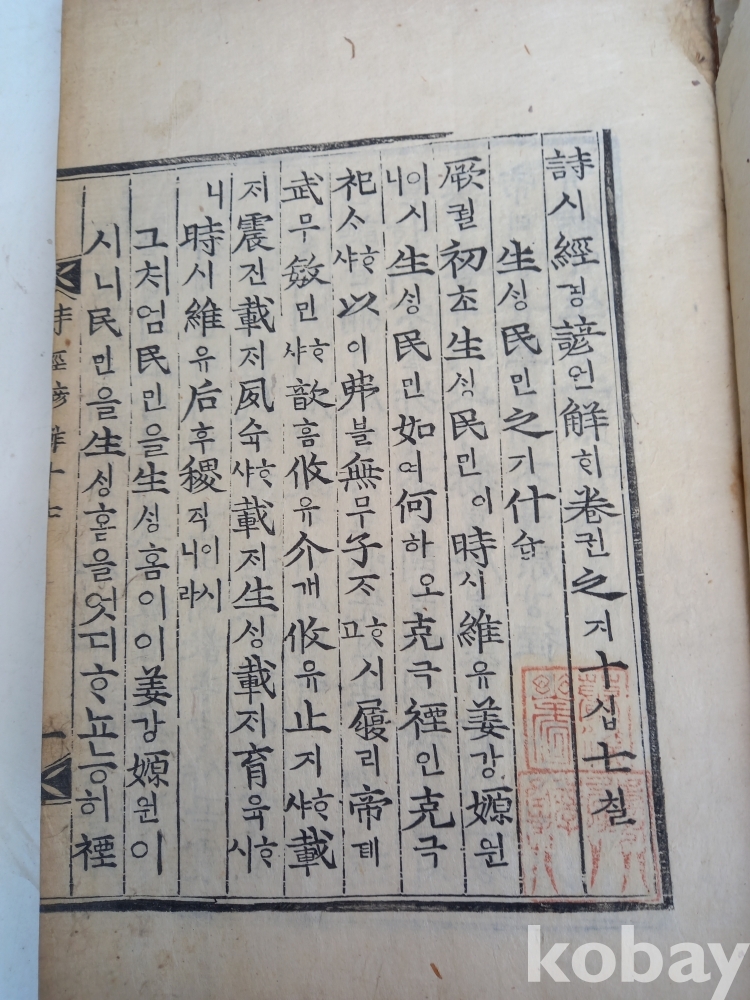 詩시經경諺언解ᄒᆡ卷권之지十십七칠
生ᄉᆡᆼ民민之지什습
厥궐初초生ᄉᆡᆼ民민이時시維유姜강嫄원
이시니生ᄉᆡᆼ民민如여何하오克극禋인克극
祀ᄉᆞᄒᆞ샤以이弗블無무子ᄌᆞᄒᆞ고시履리帝뎨
武무敏민ᄒᆞ샤歆흠攸유介개攸유止지ᄒᆞ샤載
ᄌᆡ震진載ᄌᆡ夙슉ᄒᆞ샤載ᄌᆡ生ᄉᆡᆼ載ᄌᆡ育육ᄒᆞ시
니時시維유后후稷직이시니라
그처엄民민을生ᄉᆡᆼ홈이이姜강嫄원이
시니民민을生ᄉᆡᆼ홈을엇디ᄒᆞ뇨능히禋
詩經諺解十七
一
kobay